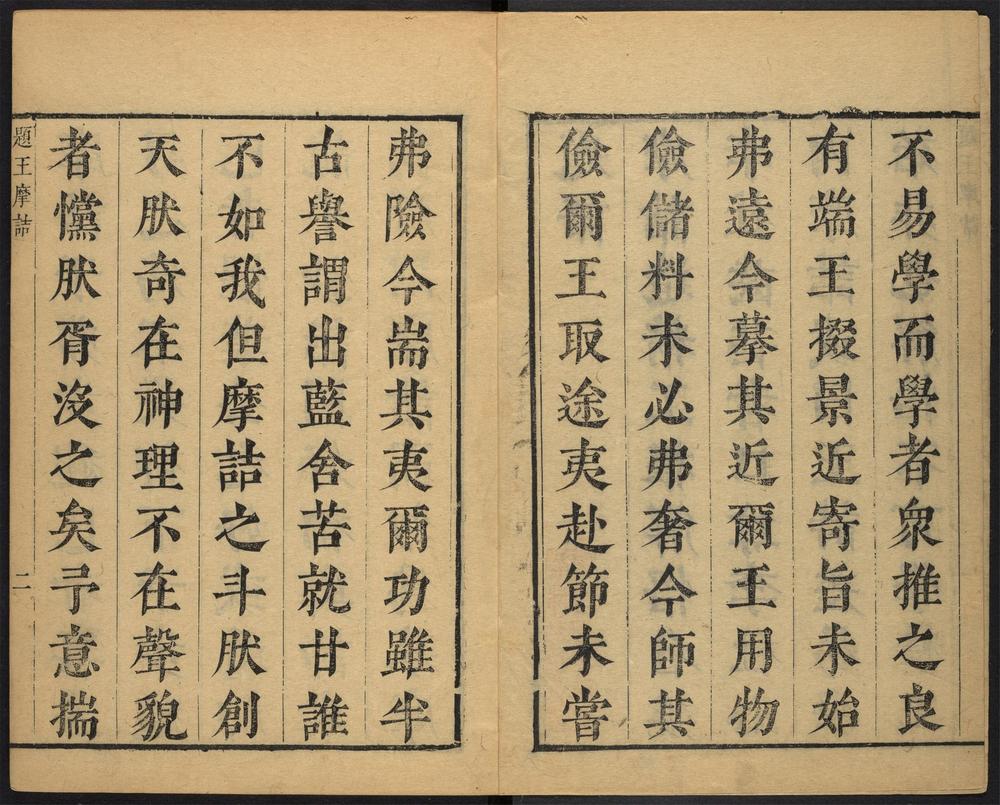 不易學而學者衆推之良
有端王掇景近寄旨未始
弗遠今摹其近爾王用物
儉儲料未必弗奢今師其
儉爾王取途夷赴節未嘗
弗險今耑其夷爾功雖半
古譽謂出藍舍苦就甘誰
不如我但摩詰之斗肰創
天肰奇在神理不在聲貌
者儻肰胥沒之矣予意揣
題王摩詰
二